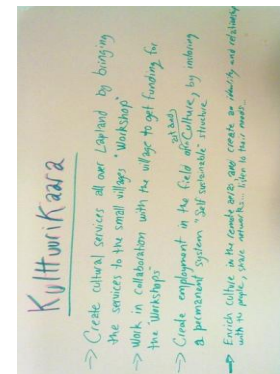 KulttuuriKaara
-> Create cultural services all over Lapland by bringing
the services to the small villages "Workshop"
-> Work in collaboration with the village to get funding for
the "Workshops"
-> Create employment in the field of Culture, by
art and
a permanent system "self sustainable" structure,
-> Enrich culture in the remote areas and create an identity and relationship
with the people, share networks... listen to their needs...